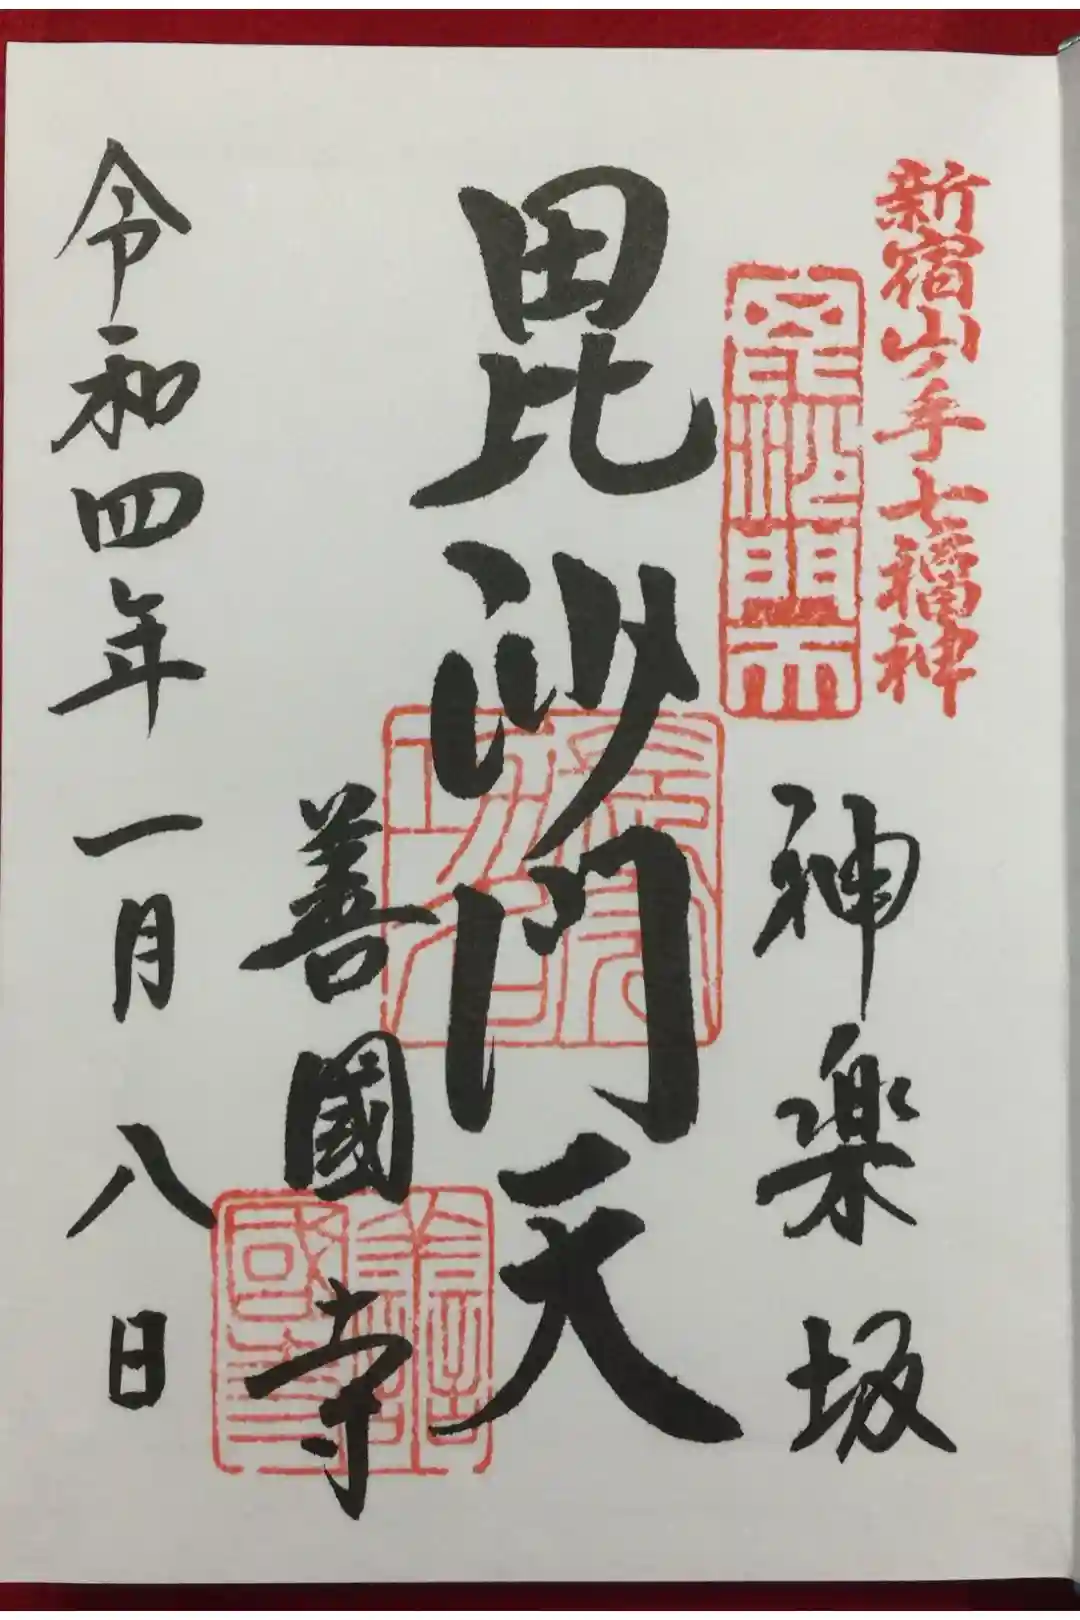 新宿山ノ手七福神
神楽坂
毘沙門天
善國寺
令和四年一月八日